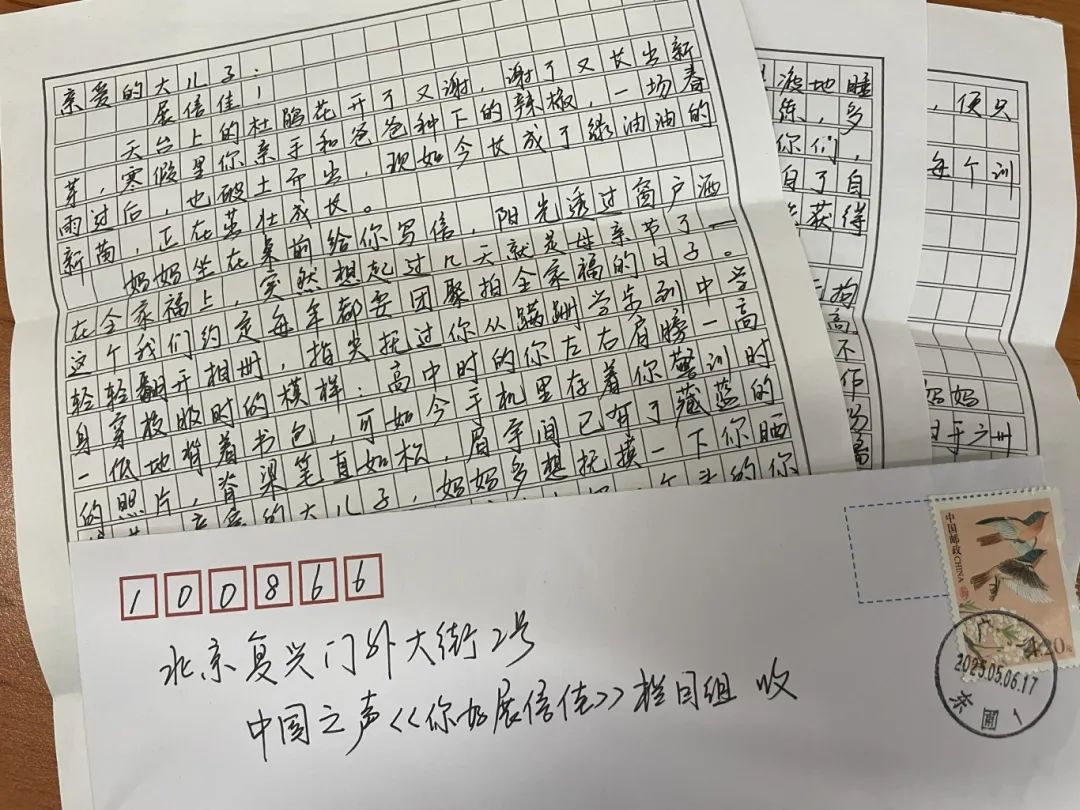 亲爱的大儿子:
展信佳!
天台上的杜鹃花开了又谢,谢了又长出新
芽,寒假里你亲手和爸爸种下的辣椒,一场春
雨过后,也破土而出,现如今长成了绿油油的
新苗,正在茁壮成长。
妈妈坐在桌前给你写信,阳光透过窗户洒
在全家福上,突然想起过几天就是母亲节了—
这个我们约定每年都要团聚拍全家福的日子。
轻轻翻开相册,指尖抚过你从蹒跚学步到中学
身穿校服时的模样:高中时的你左右肩膀一高
一低地背着书包,可如今手机里存着你警训时
的照片,脊梁笔直如松,眉宇间已有了藏蓝的
亲爱的大儿子,妈妈多想抚摸一下你晒
的你
地睡
练,多
你们,
自了自
获得
拘
高
不
作
,便只
每个训
妈妈
100866
北京复兴门外大街2号
中国之声《你好展信佳》栏目组 收
中国邮政CHINA
广东
2025.05.06.17